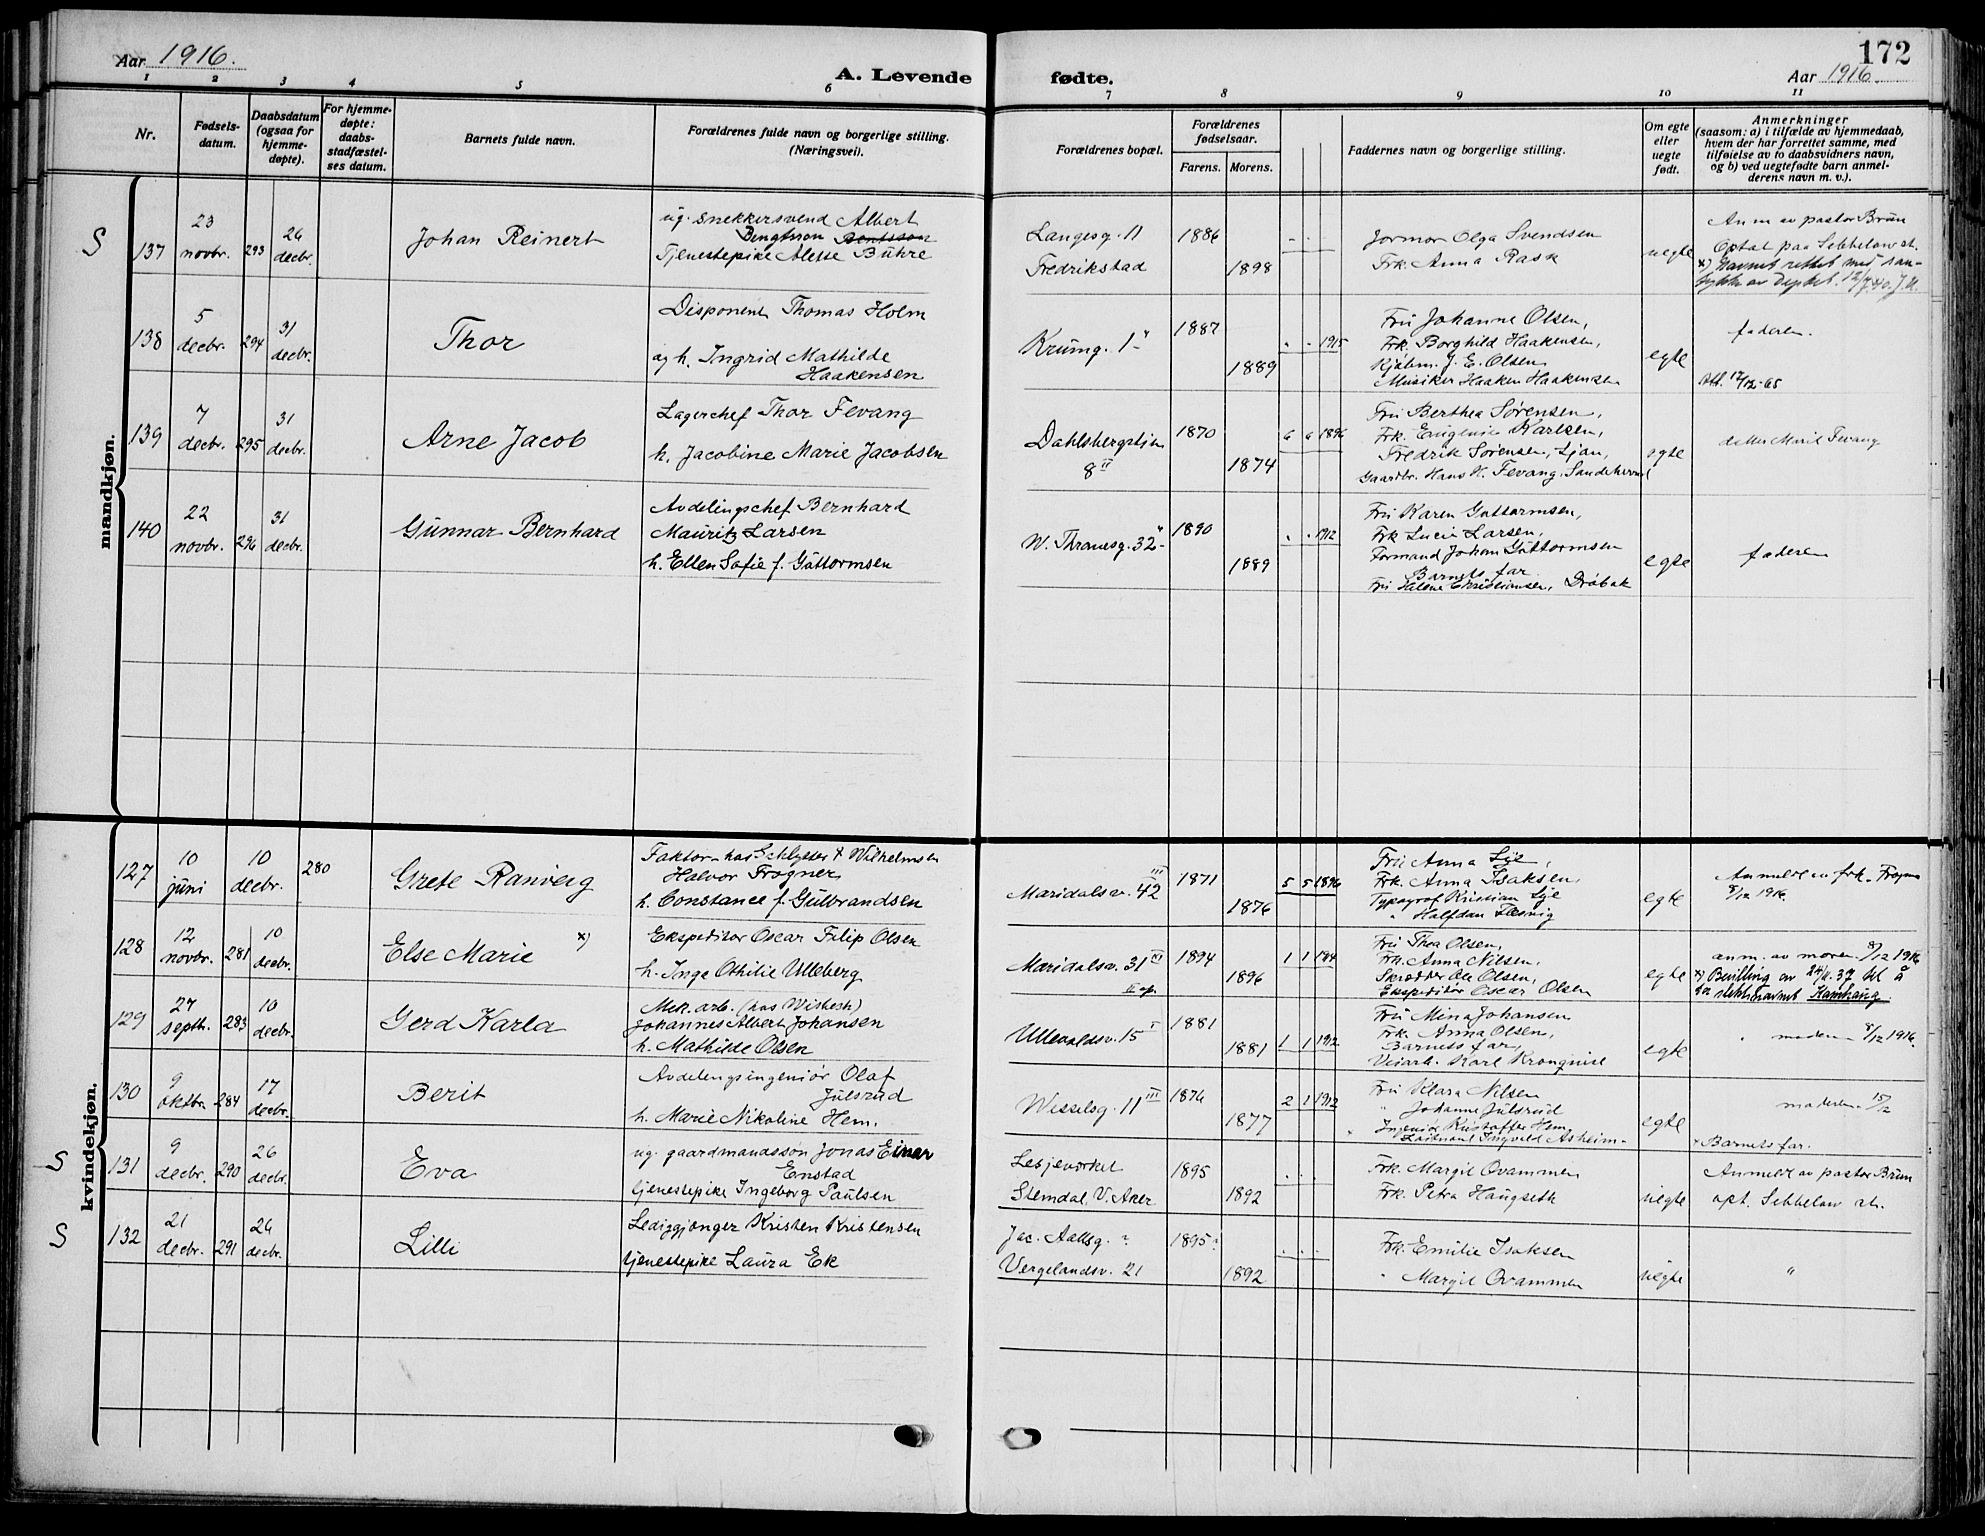 172
Aar 1916.
A. Levende fødte.
Aar 1916.
1 2 3 4 5 6 7 8 9 10 11
Nr.
Fødsels-
datum.
Daabsdatum
(ogsaa for
hjemme-
døpte).
For hjemme-
døpte:
daabs-
stadfæstel-
ses datum.
Barnets fulde navn.
Forældrenes fulde navn og borgerlige stilling.
(Næringsvei).
Forældrenes bopæl.
Forældrenes
fødselsaar.
Farens. Morens.
Faddernes navn og borgerlige stilling.
Om egte
eller
uegte
født.
Anmerkninger
(saasom: a) i tilfælde av hjemmedaab,
hvem der har forrettet samme, med
tilføielse av to daabsvidners navn,
og b) ved uegtefødte barn anmel-
derens navn m. v.).
mandkjøn.
S
137
23
novbr.
293
26
decbr.
Johan Reinert
ug. snekkersvend Albert
Bengtsson Bentsson
Tjenestepike Alette Buhre
Langesg. 11
Fredrikstad
1886
1898
Jormor Olga Svendsen
Frk. Anna Rask
uegte
Anm av pastor Brun
Optat paa Sebbelow st.
x) Navnet rettet med sam-
tykke av Depket. 12/7 40. J.N.
138
5
decbr.
294
31
decbr.
Thor
Disponent Thomas Holm
og h. Ingrid Mathilde
Haakensen
Krumg. 1
1887
1889
1915
Fru Johanne Olsen,
Frk. Borghild Haakensen,
Kjøbm. J. E. Olsen,
Musiker Haaken Haakensen
egte
faderen.
Att. 17/12-65
139
7
decbr.
295
31
decbr.
Arne Jacob
Lagerchef Thor Fevang
h. Jacobine Marie Jacobsen
Dahlsbergstien
8 II
1870
1874
6 6 1896
Fru Berthea Sørensen,
Frk. Eugenie Karlsen,
Fredrik Sørensen, Ljan,
Gaardbr. Hans H. Fevang, Sandeherred
egte
datter Marie Fevang
140
22
novbr.
296
31
decbr.
Gunnar Bernhard
Avdelingschef Bernhard
Mauritz Larsen
h. Ellen Sofie f. Guttormsen
W. Thranesg. 32
1890
1889
1912
Fru Karen Guttormsen,
Frk Lucie Larsen,
Formand Johan Guttormsen
Barnets far
Fru Halene Christiansen, Drøbak
egte
faderen
kvindekjøn.
127
10
juni
10
decbr.
280
Grete Ranveig
Faktor hos Schlytter & Wilhelmsen
Halvor Frogner
h. Constance f. Gulbrandsen
Maridalsv. 42 III
1871
1876
5 5 1896
Fru Anna Lye,
Frk. Anna Isaksen,
Typograf Kristian Lye
" Halfdan Flesvig
egte
Anmeldt av frk. Frogner
8/12 1916.
128
12
novbr.
281
10
decbr.
Else Marie x)
Ekspeditør Oscar Filip Olsen
h. Inga Othilie Ulleberg
Maridalsv. 31 III
II op.
1894
1896
1 1 1914
Fru Thea Olsen,
Frk. Anna Nilsen,
Skrædder Ole Olsen,
Ekspeditør Oscar Olsen
egte
anm. av moren 8/12 1916
x) Bevilling av 24/11.37 til å
ta slektsnavnet Kamhaug.
129
27
septb.
283
10
decbr.
Gerd Karla
Mek. arb. (hos Wisbech)
Johannes Albert Johansen
h. Mathilde Olsen
Ullevoldsv. 15 I
1881
1881
1 1 1912
Fru Mina Johansen
Frk. Anna Olsen,
Barnets far,
Veiarb. Karl Kronqvist
egte
" moderen 8/12 1916.
130
9
oktbr.
284
17
decbr.
Berit
Avdelingsingeniør Olaf
Julsrud
h. Marie Nikoline Hem.
Wesselsg. 11 III
1876
1877
2 1 1912
Fru Klara Nilsen
" Johanne Julsrud
Ingeniør Kristoffer Hem,
Løitnant Ingvald Asheim
egte
moderen 15/12
Barnets far.
S
131
9
decbr.
290
26
decbr.
Eva
ug. gaardmandssøn Jonas Einar
Enstad
tjenestepike Ingeborg Paulsen
Lesjeverket
Stemdal, V. Aker
1895
1892
Frk. Margit Ovammen
Frk. Petra Haugseth
uegte
Anmeldt av pastor Brun
opt. Sebbelow st.
S
132
21
decbr.
291
26
decbr.
Lilli
Lediggjænger Kristen Kristensen
tjenestepike Laura Ek
Jac. Aallsg. ?
Vergelandsv. 21
1895?
1892
Frk. Emilie Isaksen
" Margit Ovammen
uegte
"